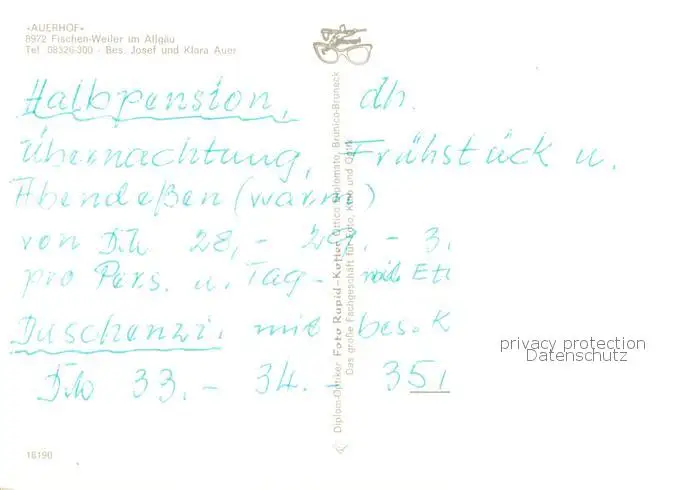 «AUERHOF»
8972 Fischen-Weiler im Allgäu
Tel. 08326-300 - Bes. Josef und Klara Auer
Halbpension, dh.
Übernachtung, Frühstück u.
Abendeßen (warm)
von DM 28,- 29,- 3
pro Pers. u. Tag - Et
Duschenzi. mit bes. K
DM 33.- 34.- 35,
Diplom-Optiker Foto Rapid-Kotter Ottico Diplomato, Brunico-Bruneck
Das große Fachgeschäft für Foto, Kino und Optik
privacy protection
Datenschutz
16190